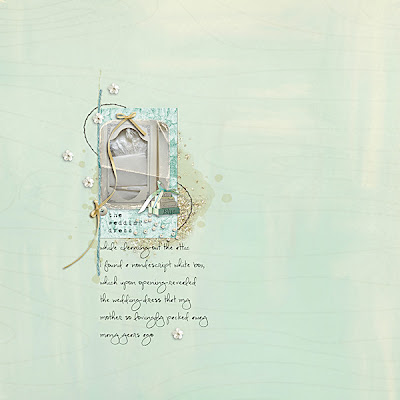 the
wedding
dress
while cleaning out the attic
i found a nondescript white box,
which upon opening revealed
the wedding dress that my
mother so lovingly packed away
many years ago